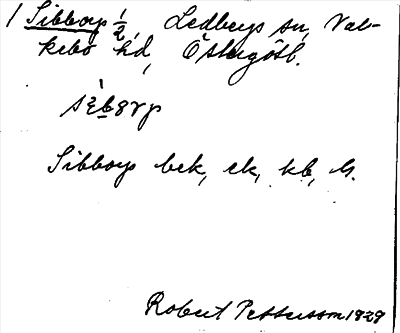 1 Sibborp 1/2, Ledbergs sn, Val-
kebo hd, Östergötl.
Sibborp bek, ek, kb, M.
Robert Pettersson 1929